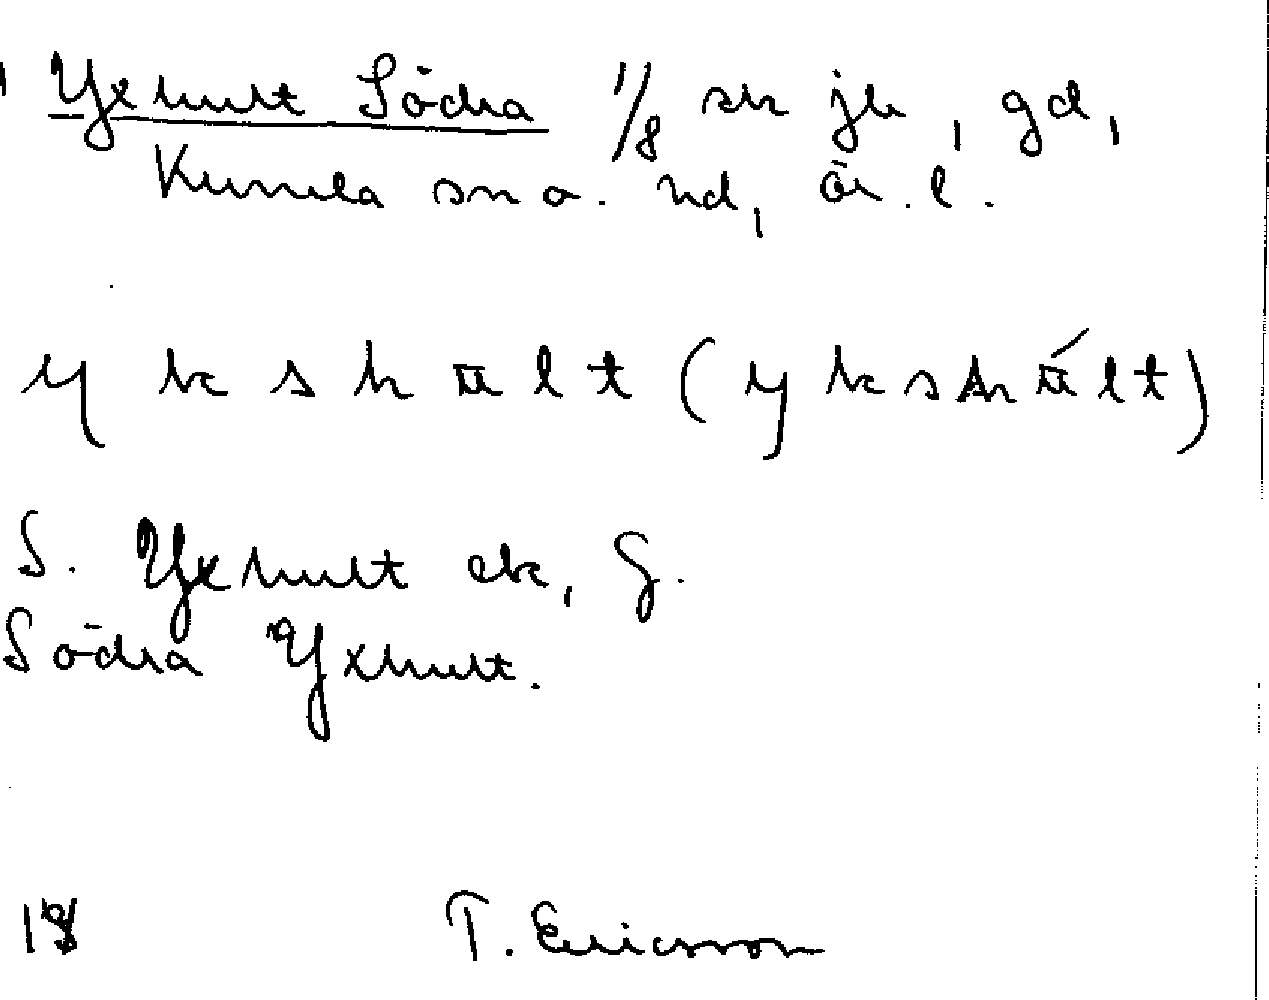 Yxhult Södra 1/8 sk jb, gd,
Kumla sn o. hd, Ör. l.
y k s h u l t (y k s h ú l t)
S. Yxhult ek, G.
Södra Yxhult.
18 T. Ericsson